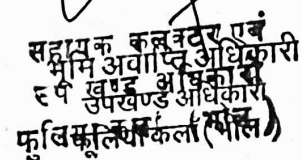 सहायक कलक्टर एवं
भूमि अवाप्ति अधिकारी
उप खण्ड अधिकारी
उपखण्ड अधिकारी
फुलियाकलां (भील)